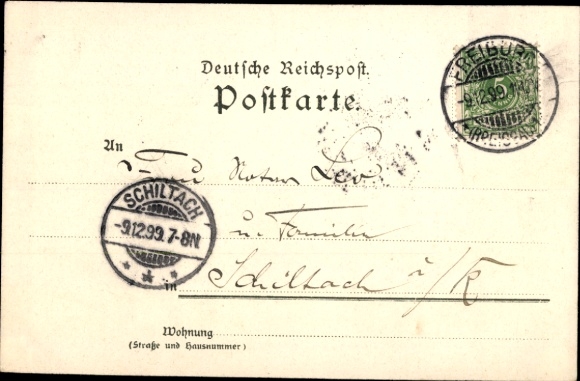 Deutsche Reichspost.
Postkarte.
FREIBURG
-9.12.99.
(BREISGAU)
An
Notar
u. Familie
SCHILTACH
-9.12.99.7-8N.
in Schiltach
Wohnung
(Straße und Hausnummer)